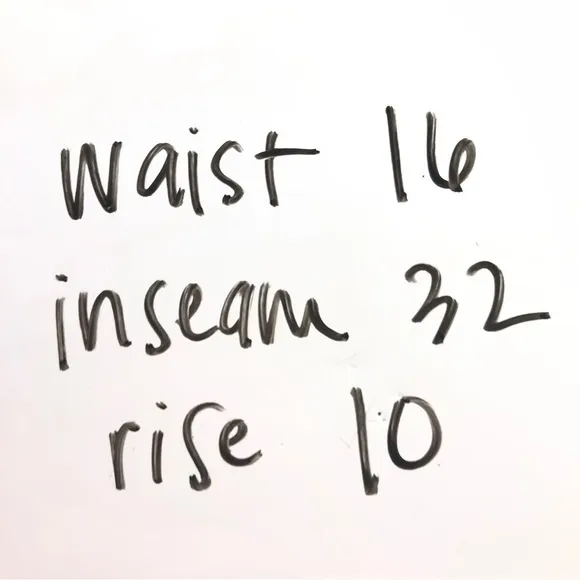 waist 16
inseam 32
rise 10